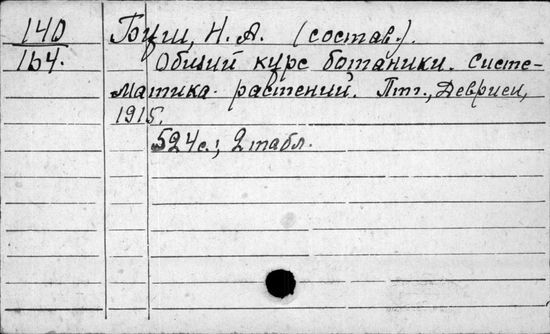 140
164.
Буш, Н. А. (состав.).
Общий курс ботаники. Систе-
матика растений. Птг., Девриен,
1915.
524 с.; 2 табл.